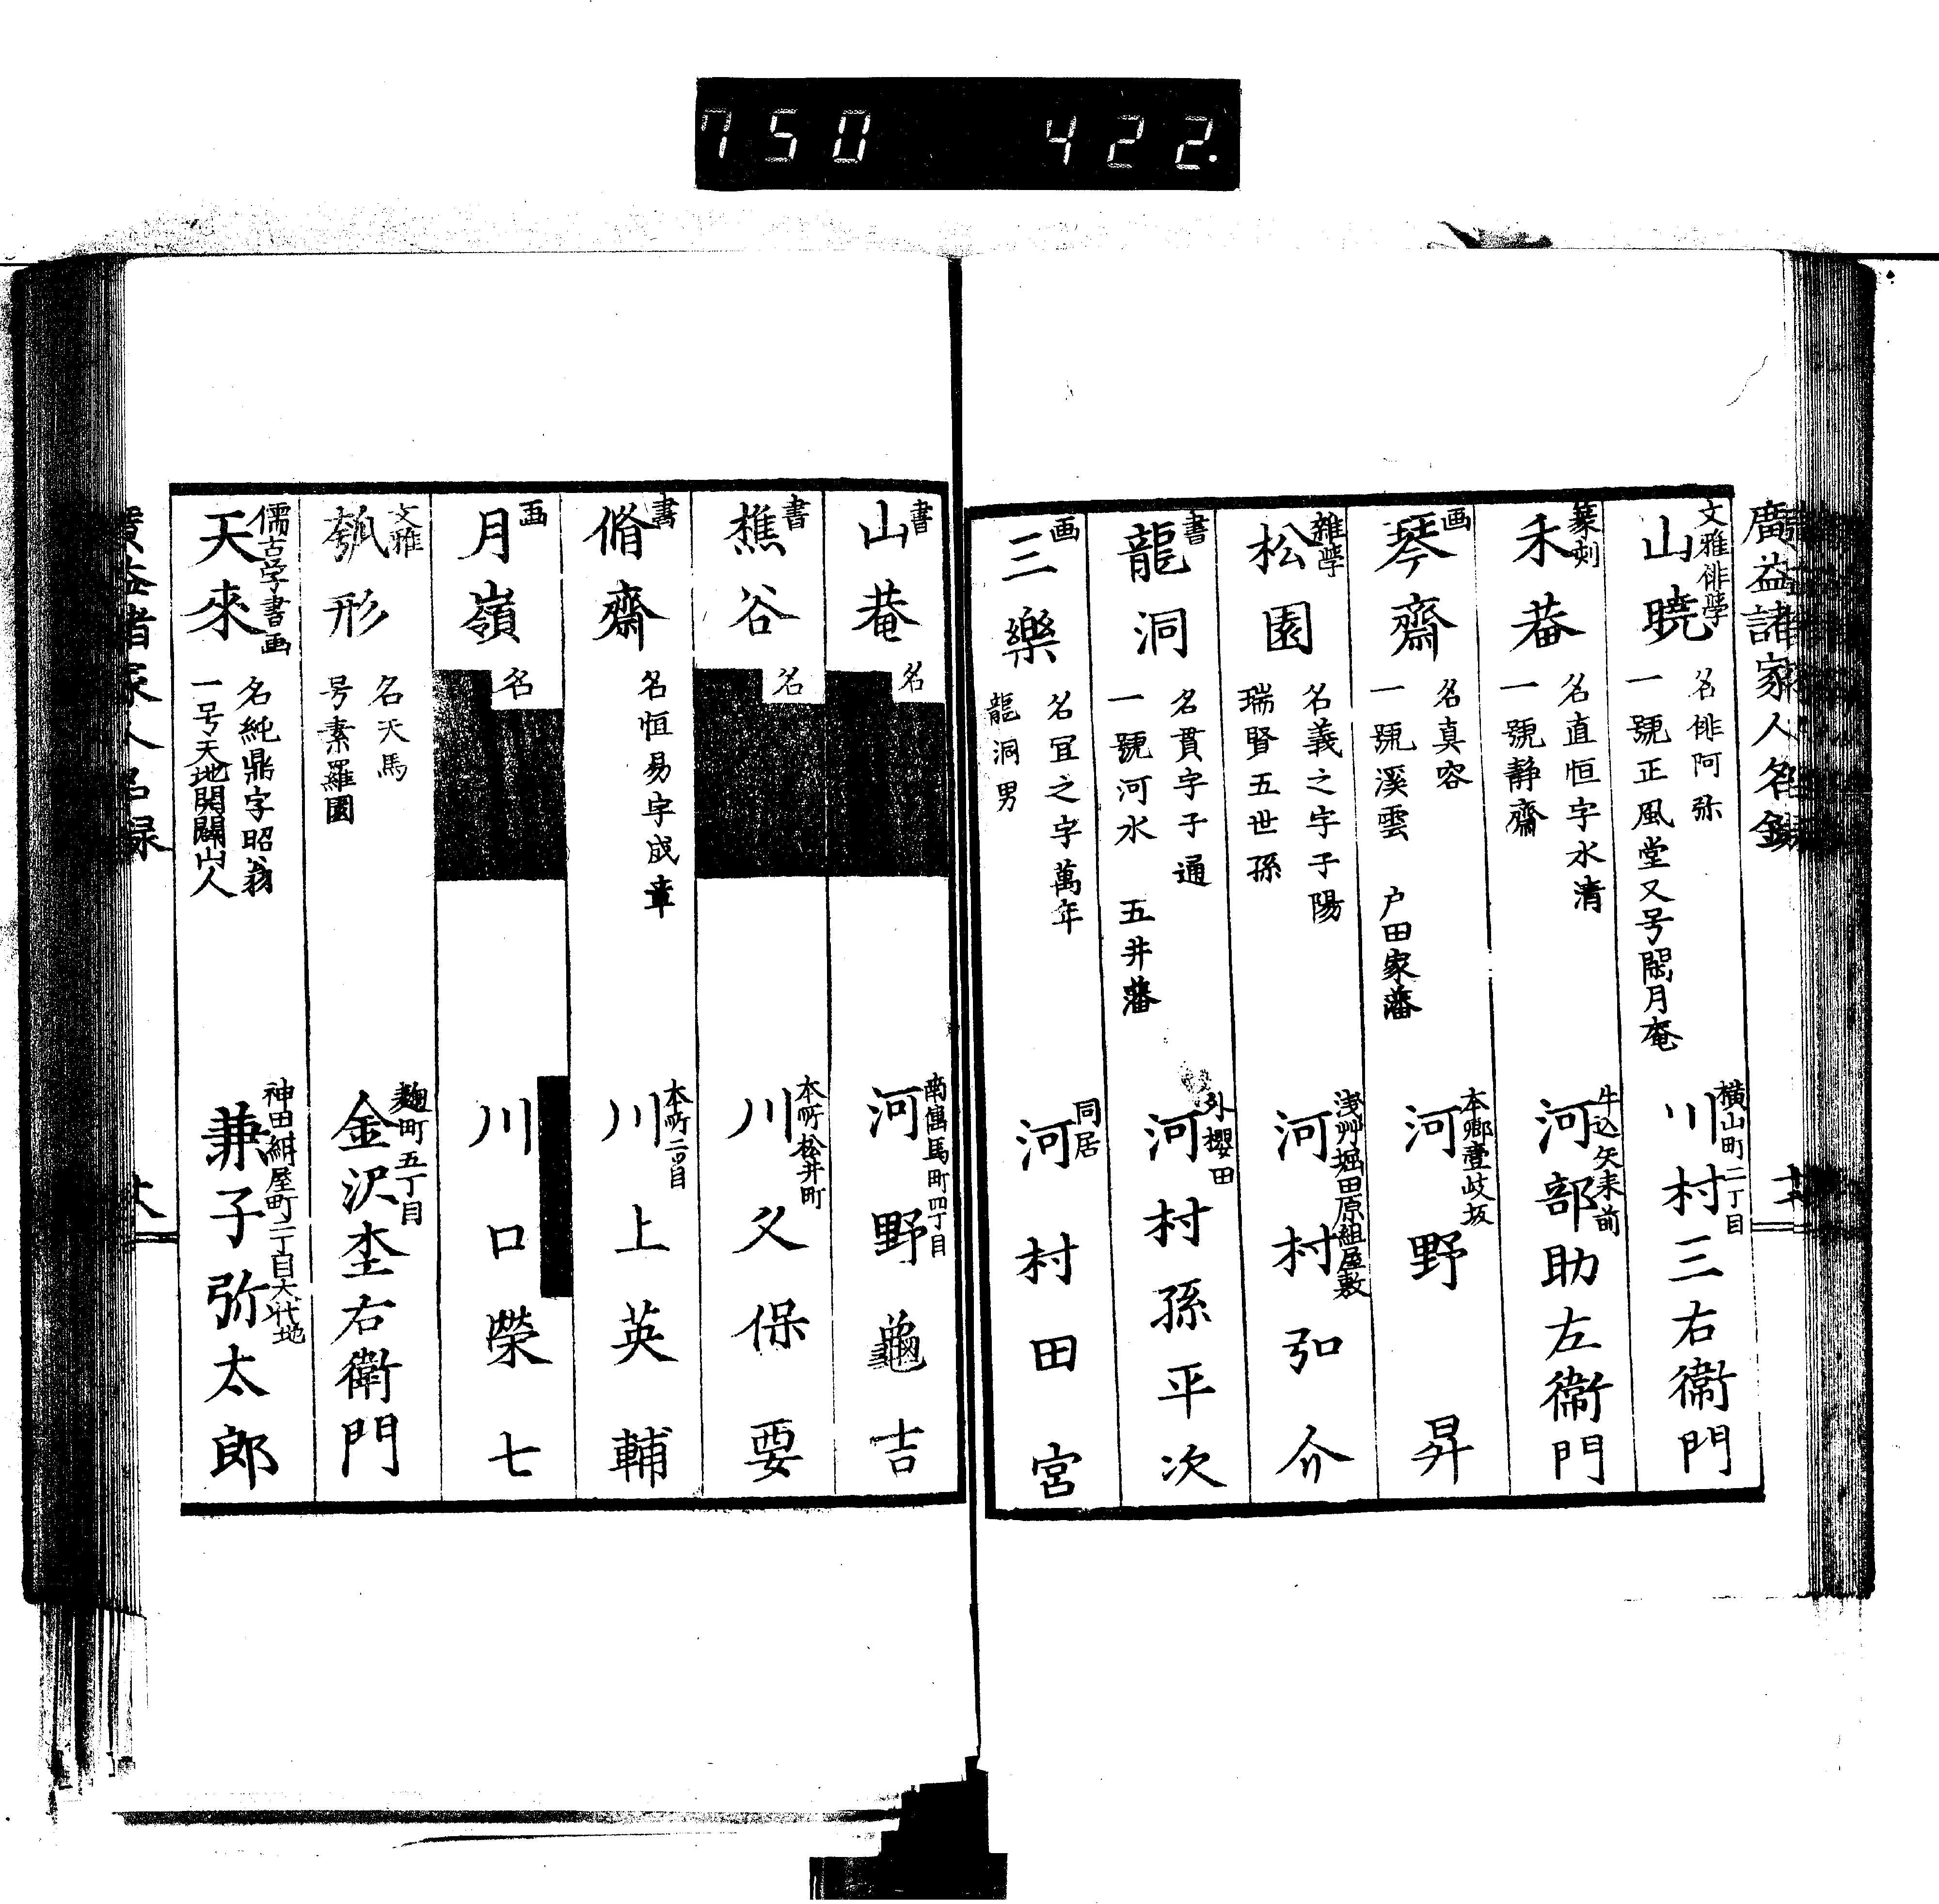 750 422.
廣益諸家人名録
文雅俳學
山曉
名俳阿弥
一號正風堂又号閑月庵
横山町二丁目
川村三右衞門
篆刻
禾菴
名直恒字水清
一號静齋
牛込矢来前
河部助左衞門
画
琴齋
名真容
一號溪雲 戸田家藩
本郷壹岐坂
河野昇
雑學
松園
名義之字子陽
瑞賢五世孫
浅艸堀田原組屋敷
河村弘介
書
龍洞
名貫字子通
一號河水 五井藩
外櫻田
河村孫平次
画
三樂
名宜之字萬年
龍洞男
同居
河村田宮
書
山菴
名
南傳馬町四丁目
河野龜吉
書
樵谷
名
本所松井町
川久保要
書
脩齋
名恒易字成章
本所二ツ目
川上英輔
画
月嶺
名
川口榮七
文雅
瓠形
名天馬
号素羅園
麹町五丁目
金沢杢右衞門
儒古学書画
天來
名純鼎字昭翁
一号天地開闢山人
神田紺屋町二丁目大代地
兼子弥太郎